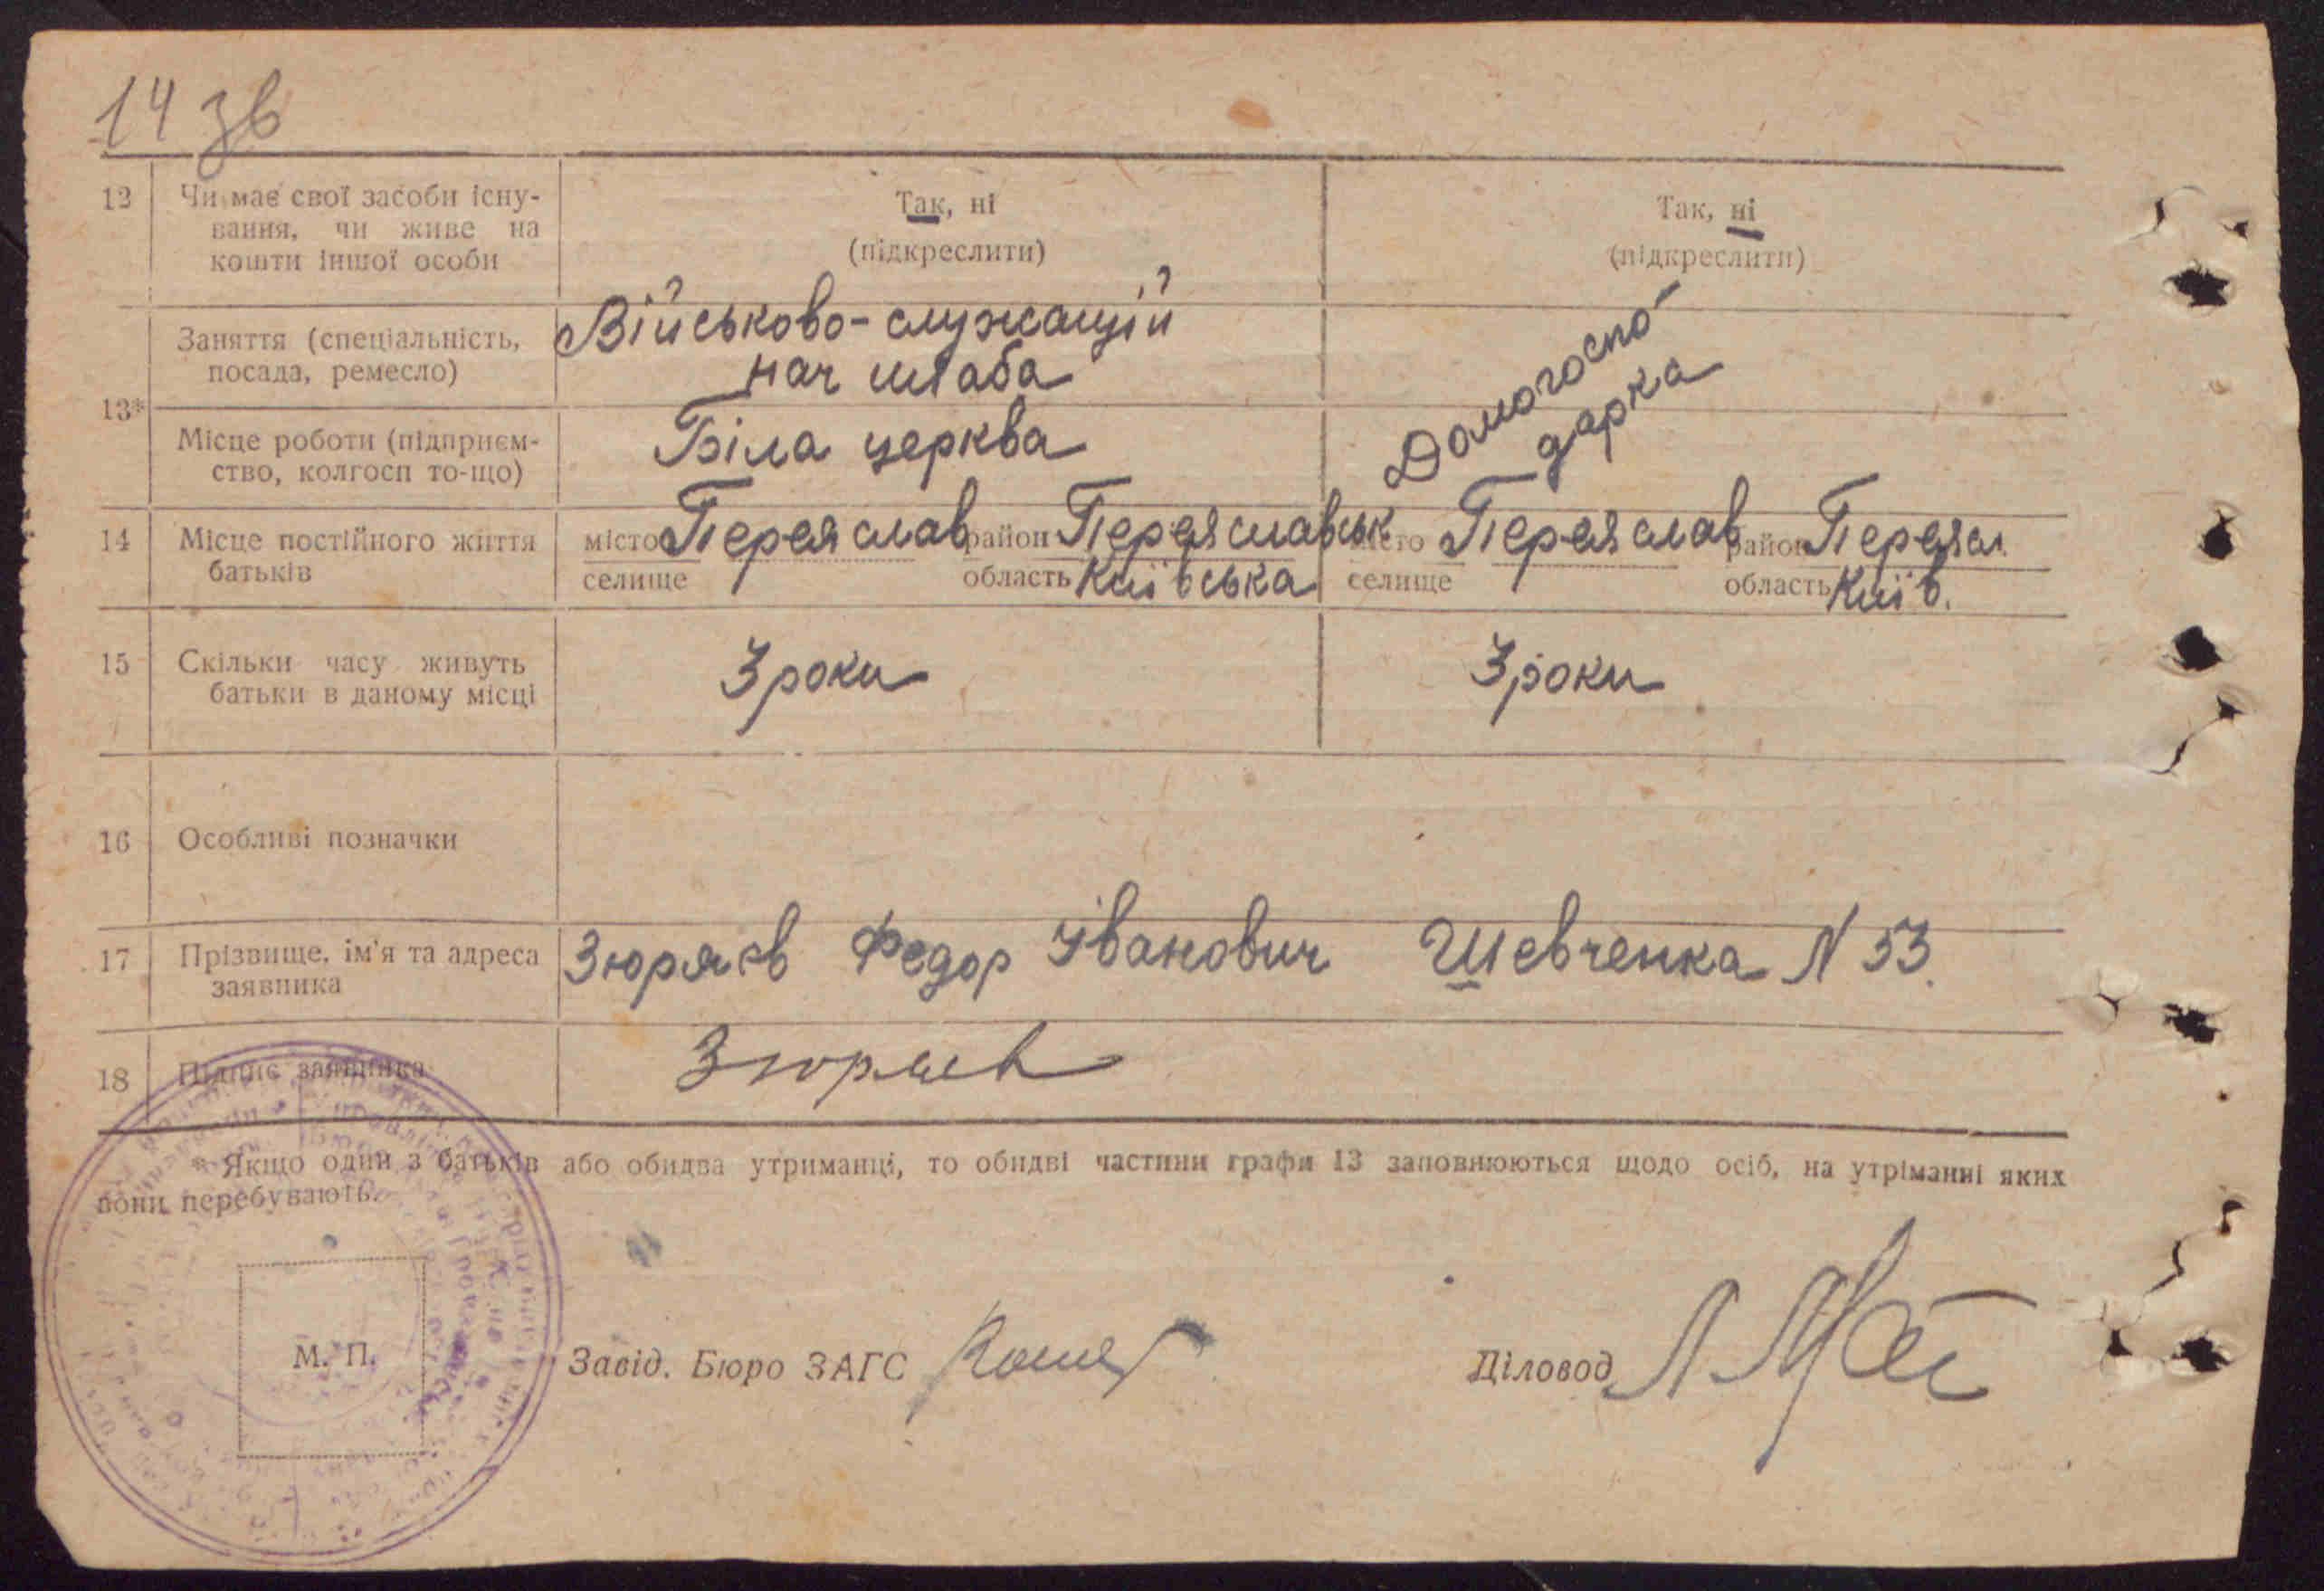 14 зв
12 Чи має свої засоби існу- Так, ні Так, ні
вання, чи живе на (підкреслити) (підкреслити)
кошти іншої особи
13* Заняття (спеціальність, Військово-служащій
посада, ремесло) нач штаба Домогоспо-
Місце роботи (підприєм- Біла церква дарка
ство, колгосп то-що)
14 Місце постійного життя місто Переяслав район Переяславськ місто Переяслав район Переясл.
батьків селище область Київська селище область Київ.
15 Скільки часу живуть 3 роки 3 роки
батьки в даному місці
16 Особливі позначки
17 Прізвище, ім'я та адреса Зюряєв Федор Іванович Шевченка N 53.
заявника
18 Підпис заявника Зюряев
* Якщо один з батьків або обидва утриманці, то обидві частини графи 13 заповнюються щодо осіб, на утріманні яких
вони перебувають.
М. П. Завід. Бюро ЗАГС Діловод